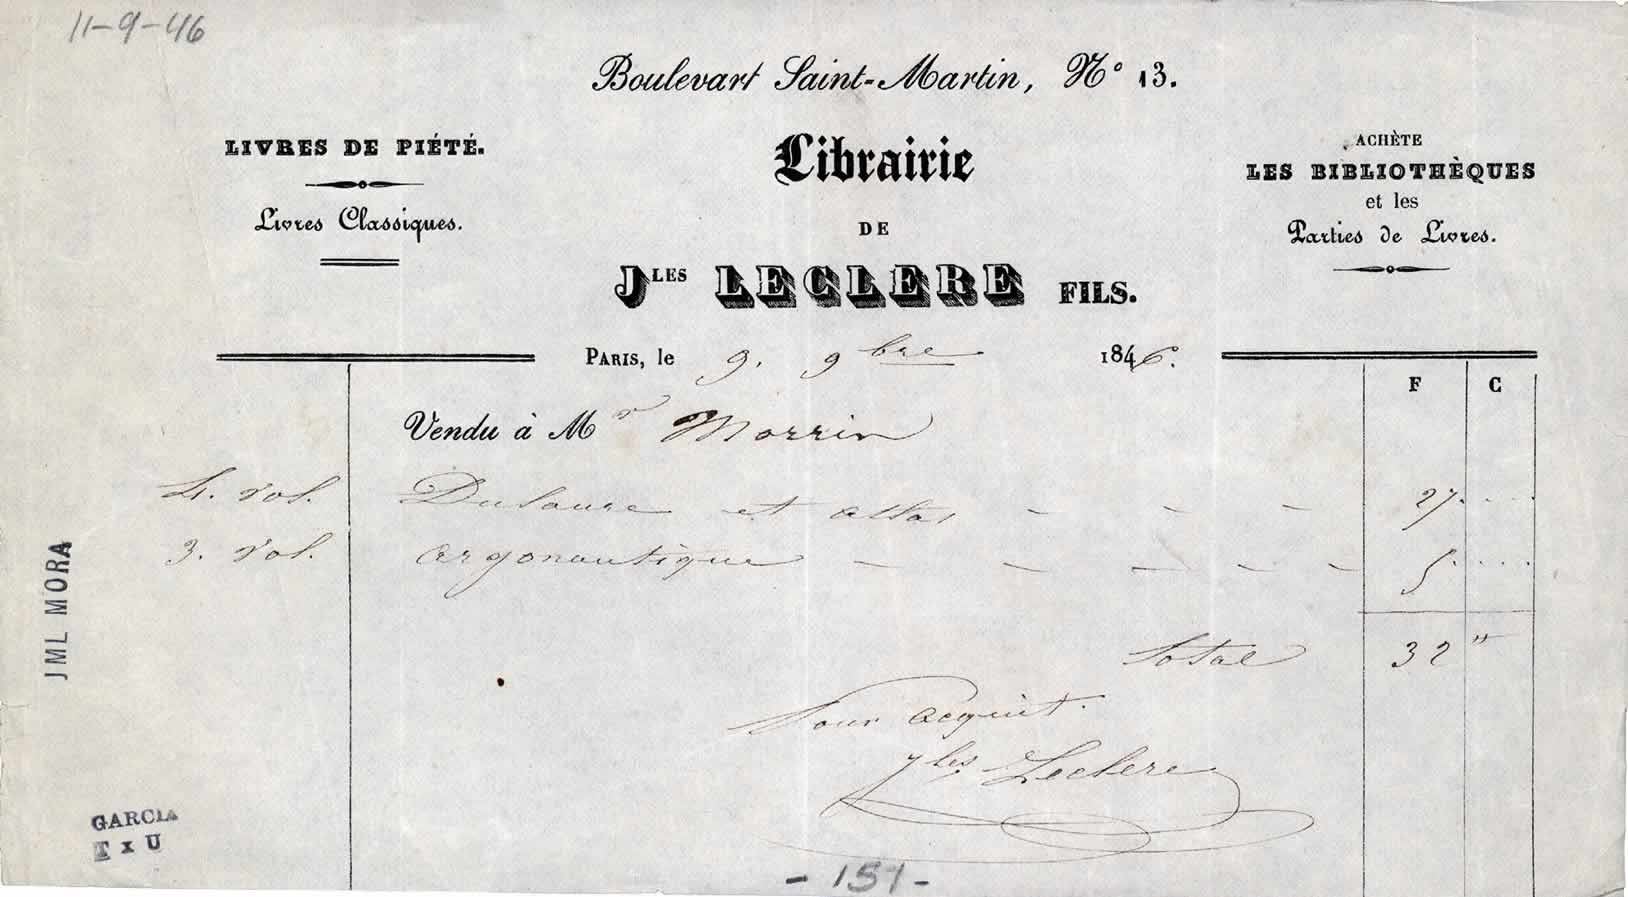 11-9-46
Boulevart Saint-Martin, N° 13.
LIVRES DE PIÉTÉ.
Livres Classiques.
Librairie
DE
Jles LECLERE FILS.
ACHÈTE
LES BIBLIOTHÈQUES
et les
Parties de Livres.
Paris, le 9. 9bre 1846.
F C
Vendu à Mr Morrin
4. vol. Dulaure et atlas - - - 27 . . . .
3. vol. argonautique - - - - - - 5 . . . .
total 32 "
Pour acquit.
Jles Leclere
JML MORA
GARCIA
T x U
- 151 -